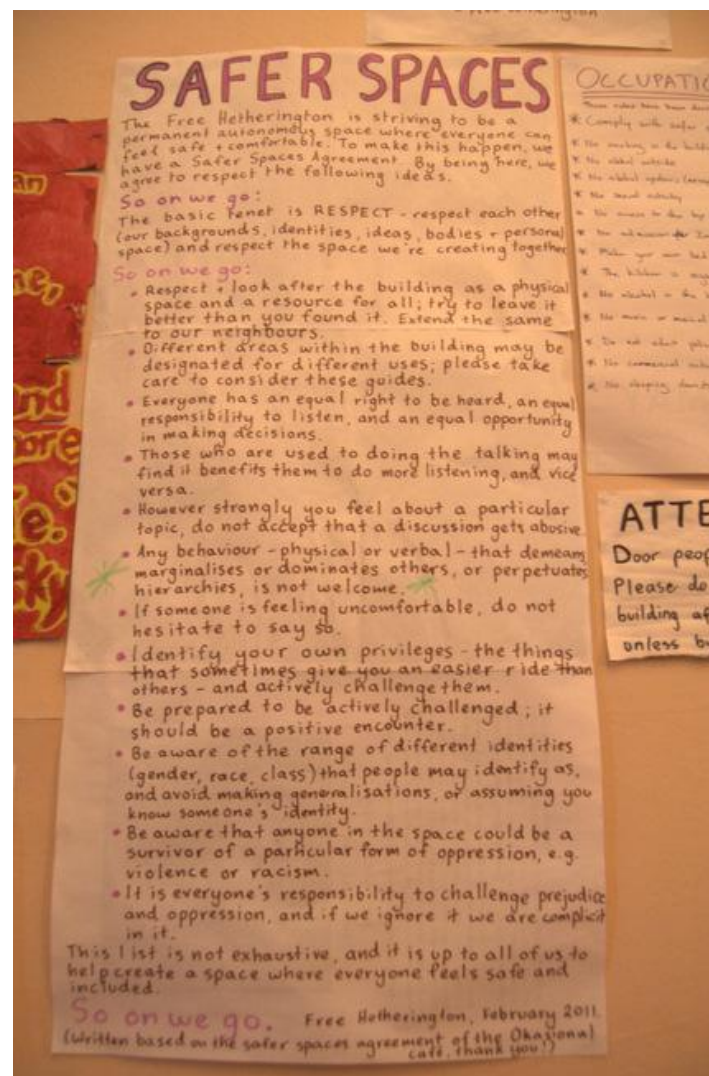 SAFER SPACES
The Free Hetherington is striving to be a
permanent autonomous space where everyone can
feel safe + comfortable. To make this happen, we
have a Safer Spaces Agreement. By being here, we
agree to respect the following ideas.
So on we go:
The basic tenet is RESPECT - respect each other
(our backgrounds, identities, ideas, bodies + personal
space) and respect the space we're creating together
So on we go:
• Respect + look after the building as a physical
space and a resource for all; try to leave it
better than you found it. Extend the same
to our neighbours.
• Different areas within the building may be
designated for different uses; please take
care to consider these guides.
• Everyone has an equal right to be heard, an equal
responsibility to listen, and an equal opportunity
in making decisions.
• Those who are used to doing the talking may
find it benefits them to do more listening, and vice
versa.
• However strongly you feel about a particular
topic, do not accept that a discussion gets abusive.
• Any behaviour - physical or verbal - that demeans,
marginalises or dominates others, or perpetuates
hierarchies, is not welcome.
• If someone is feeling uncomfortable, do not
hesitate to say so.
• Identify your own privileges - the things
that sometimes give you an easier ride than
others - and actively challenge them.
• Be prepared to be actively challenged; it
should be a positive encounter.
• Be aware of the range of different identities
(gender, race, class) that people may identify as,
and avoid making generalisations, or assuming you
know someone's identity.
• Be aware that anyone in the space could be a
survivor of a particular form of oppression, e.g.
violence or racism.
• It is everyone's responsibility to challenge prejudice
and oppression, and if we ignore it we are complicit
in it.
This list is not exhaustive, and it is up to all of us to
help create a space where everyone feels safe and
included.
So on we go. Free Hetherington, February 2011.
(Written based on the safer spaces agreement of the Okasional
café, thank you!)
OCCUPATIO
* Comply with safer
* No smoking in the building
* No sexual activity
* Make your own bed
* The kitchen is
* No alcohol in the
* No music or musical
* Do not
* No commercial
* No sleeping
ATTE
Door peop
Please do
building af
unless b